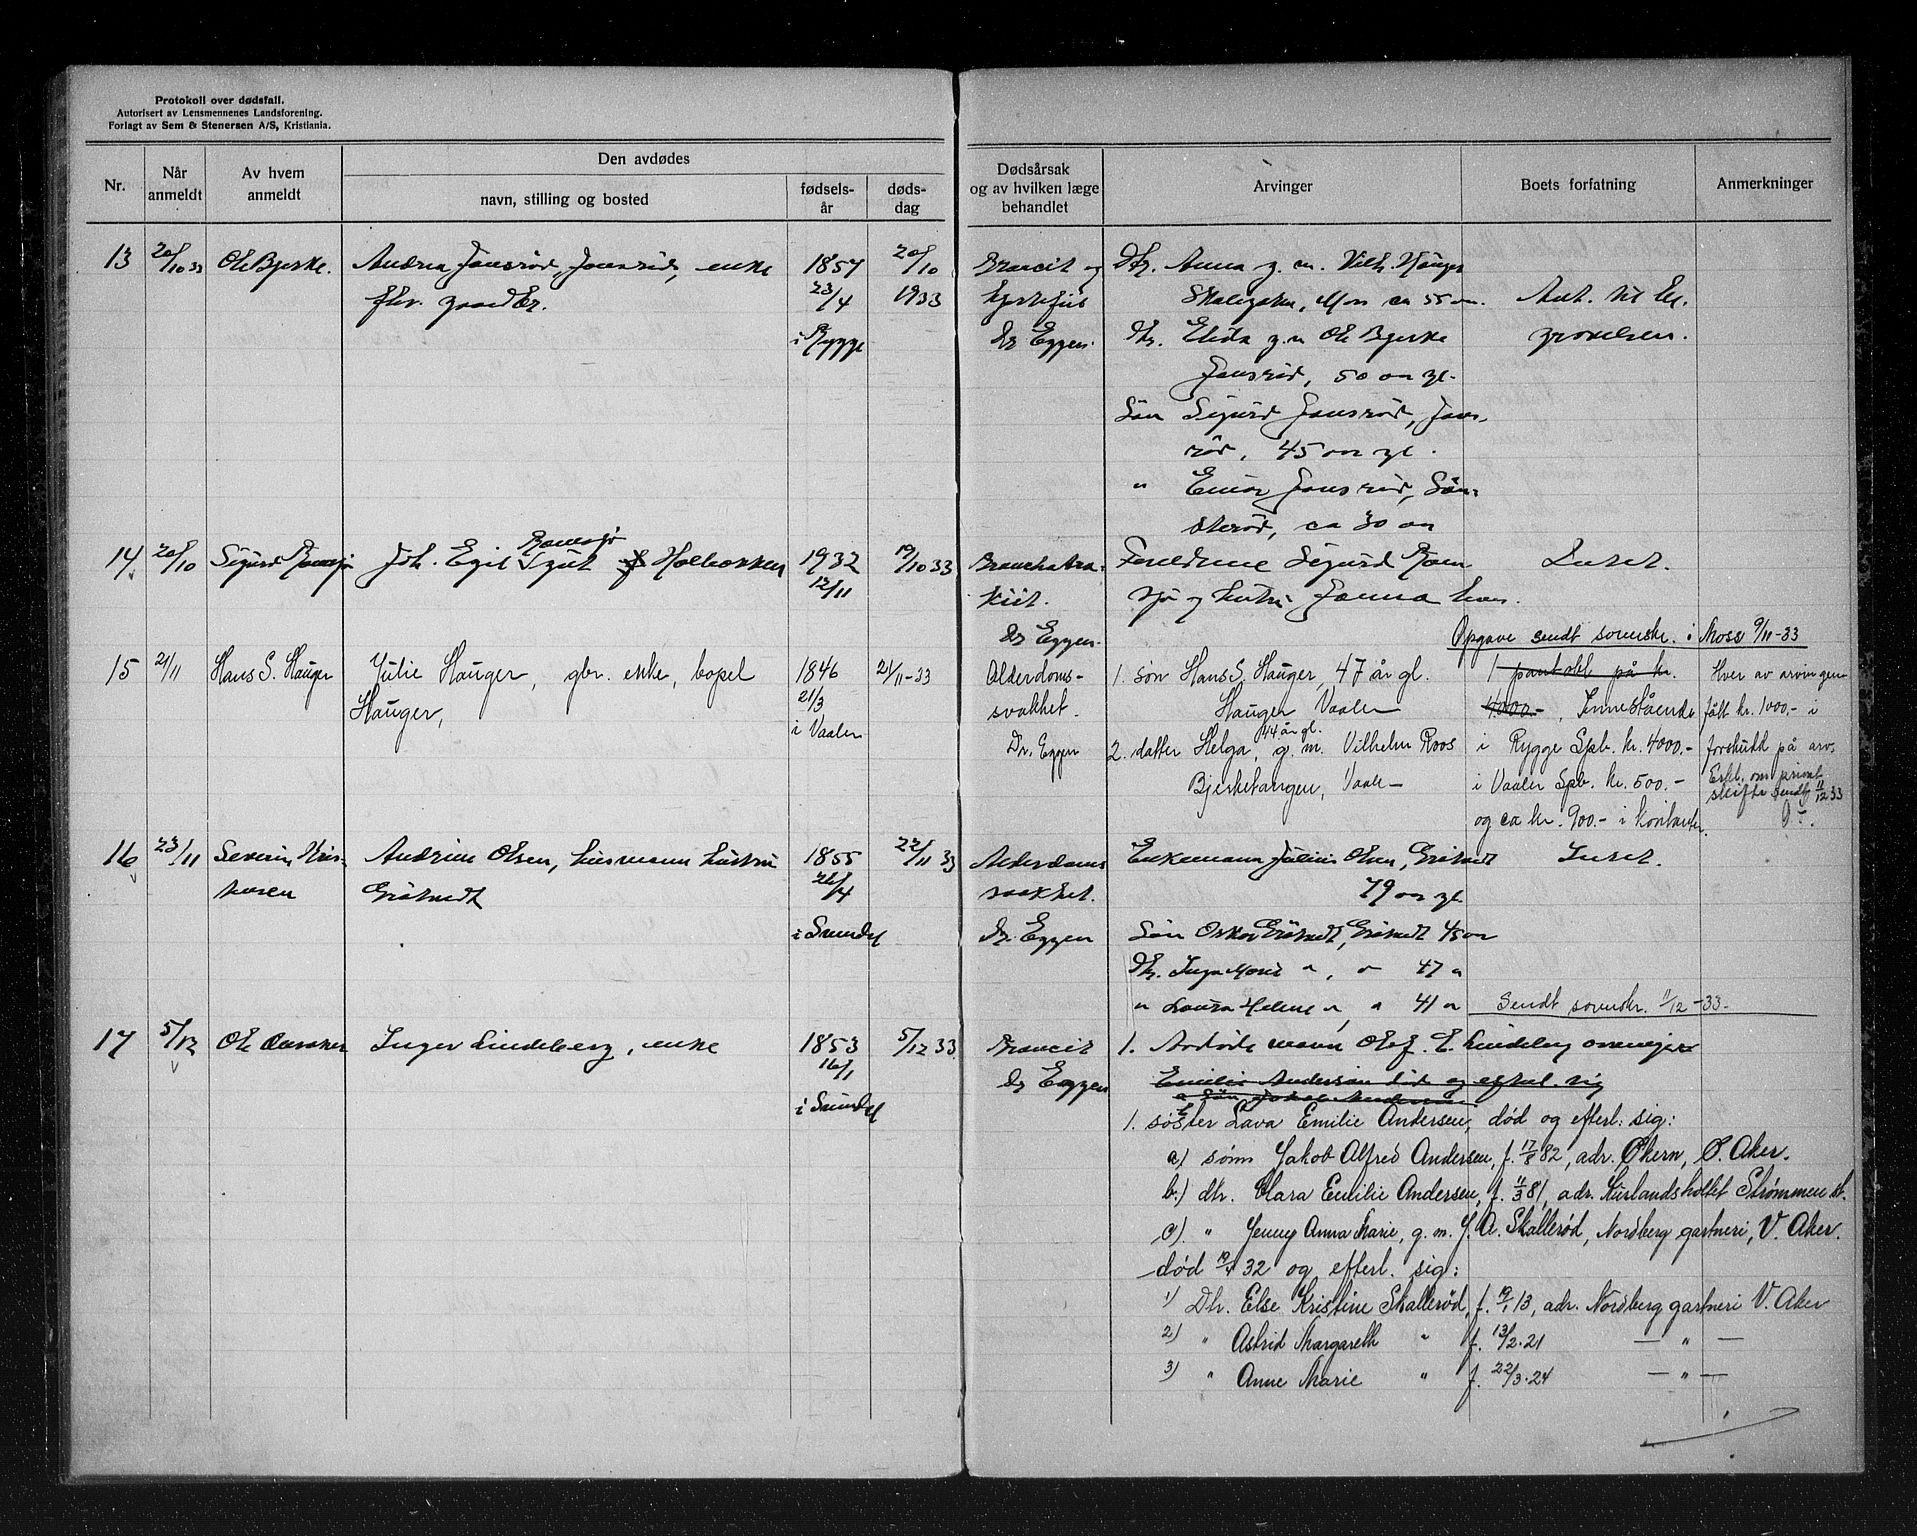 Protokoll over dødsfall.
Autorisert av Lensmennenes Landsforening.
Forlagt av Sem & Stenersen A/S, Kristiania.
Nr.
Når anmeldt
Av hvem anmeldt
Den avdødes
navn, stilling og bosted
fødsels-år
døds-dag
Dødsårsak og av hvilken læge behandlet
Arvinger
Boets forfatning
Anmerkninger
13 20/10 33 Ole Bjerke. Andrea Jonsrød, Jonsrød, enke
fhv. gaardbr.
1857
23/4
i Rygge
20/10
1933
Broncit og
hjertefeil
Dr Eggen.
Dtr. Anna g. m. Vilh. Hauger
Moss ca 55 aar.
Dtr. Elida g. m Ole Bjerke
Jonsrød, 50 aar gl.
Søn Sigurd Jonsrød, Jons-
rød, 45 aar gl.
" Einar Jonsrød,
ca 30 aar
Ant. til Be-
gravelsen.
14 20/10 Sigurd Ramsjø Joh. Egil Ramsjø Holbækken
1932
12/11
19/10 33
Dr Eggen.
Foreldrene Sigurd Ram-
sjø og hustru
Intet.
Opgave sendt sorenskr. i Moss 9/11-33
15 21/11 Hans S. Hauger Julie Hauger, gbr. enke, bopel
Hauger,
1846
21/3
i Vaaler
21/11-33
Alderdoms-
svakhet.
Dr. Eggen
1. søn Hans S. Hauger, 47 år gl.
Hauger Vaaler
44 år gl.
2. datter Helga, g. m. Vilhelm Roos
Bjerketangen, Vaaler
1 pantobl på kr.
4000.-, Innestående
i Rygge Spb. kr. 4000.-
i Vaaler Spb. kr. 500.-
og ca kr. 900.- i kontanter.
Hver av arvingene
fått kr. 1000.- i
forskudd på arv.
Erkl. om privat
skifte sendt 11/12 33
16 23/11 Severin Kris-
tiansen
Andrine Olsen, husmanns hustru
Gråstvedt
1855
26/4
i Svindal
22/11 33
Alderdoms
svakhet.
Dr. Eggen
Enkemann Julius Olsen,
79 aar gl.
Søn Oskar 45 aar
Dtr. Inga Marie ", " 47 "
" Laura Helene ", " 41 "
Intet.
Sendt sorenskr. 11/12-33.
17 5/12 Inger Lindeberg, enke
1853
16/1
i Svindal
5/12 33
Broncit
Dr Eggen
1. Avdøde mann Olof. E. Lindeberg
Emilie Andersen død og efterl. sig
a søn Jakob Andersen
1. søster Lava Emilie Andersen, død og efterl. sig:
a) sønn Jakob Alfred Andersen, f. 17/8 82, adr. Økern, Ø. Aker.
b.) dtr. Clara Emilie Andersen, f. 11/3 81, adr. Kurlandsholtet Strømmen st.
c) " Jenny Anna Marie, g. m. J. A. Skallerød, Nordberg gartneri, V. Aker.
død 19/4 32 og efterl. sig:
1) Dtr. Else Kristine Skallerød, f. 19/1 13, adr. Nordberg gartneri V. Aker
2) " Astrid Margareth " f. 13/2.21 — " —
3) " Anne Marie " f. 22/3.24 — " —